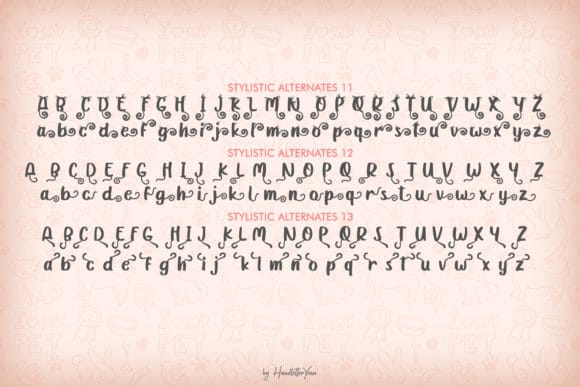 STYLISTIC ALTERNATES 11
A B C D E F G H I J K L M N O P Q R S T U V W X Y Z
a b c d e f g h i j k l m n o p q r s t u v w x y z
STYLISTIC ALTERNATES 12
A B C D E F G H I J K L M N O P Q R S T U V W X Y Z
a b c d e f g h i j k l m n o p q r s t u v w x y z
STYLISTIC ALTERNATES 13
A B C D E F G H I J K L M N O P Q R S T U V W X Y Z
a b c d e f g h i j k l m n o p q r s t u v w x y z
by HandletterYean